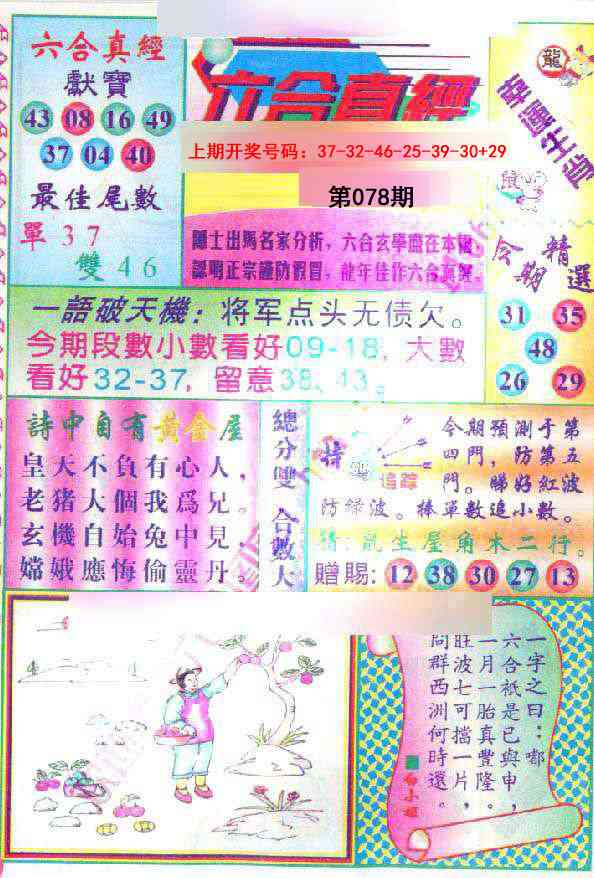 六合真經
獻寶
43 08 16 49
37 04 40
最佳尾數
單37
雙46
六合真經
上期开奖号码：37-32-46-25-39-30+29
第078期
隱士出馬名家分析，六合玄學盡在本版，
認明正宗謹防假冒，龍年佳作六合真經。
龍
鼠
今期
精選
31 35
48
26 29
一語破天機：将军点头无债欠。
今期段數小數看好09-18，大數
看好32-37，留意38、43。
詩中自有黃金屋
皇天不負有心人，
老猪大個我爲兄。
玄機自始兔中見，
嫦娥應悔偷靈丹。
總分雙 合數大
特
追踪
今期預測于第
四門，防第五
門。睇好紅波
防绿波。棒單數追小數。
生屋角木二行。
贈賜：12 38 30 27 13
一字之曰：嘟
六合祇是已與申，
一月一胎真豐隆。
旺波七可擋一片，
問群西洲何時還。